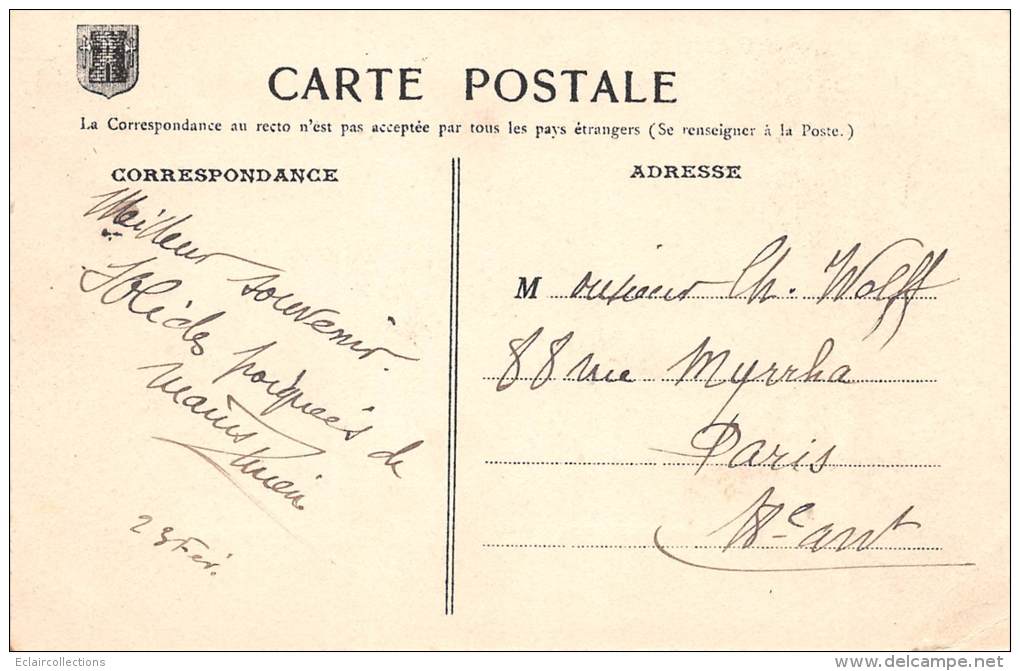 CARTE POSTALE
La Correspondance au recto n'est pas acceptée par tous les pays étrangers (Se renseigner à la Poste.)
CORRESPONDANCE
Meilleur souvenir.
Solides poignées de
mains
Lucien
23 Fév.
ADRESSE
Monsieur Ch. Wolff
88 rue Myrrha
Paris
Eclaircollections
delcampe.net